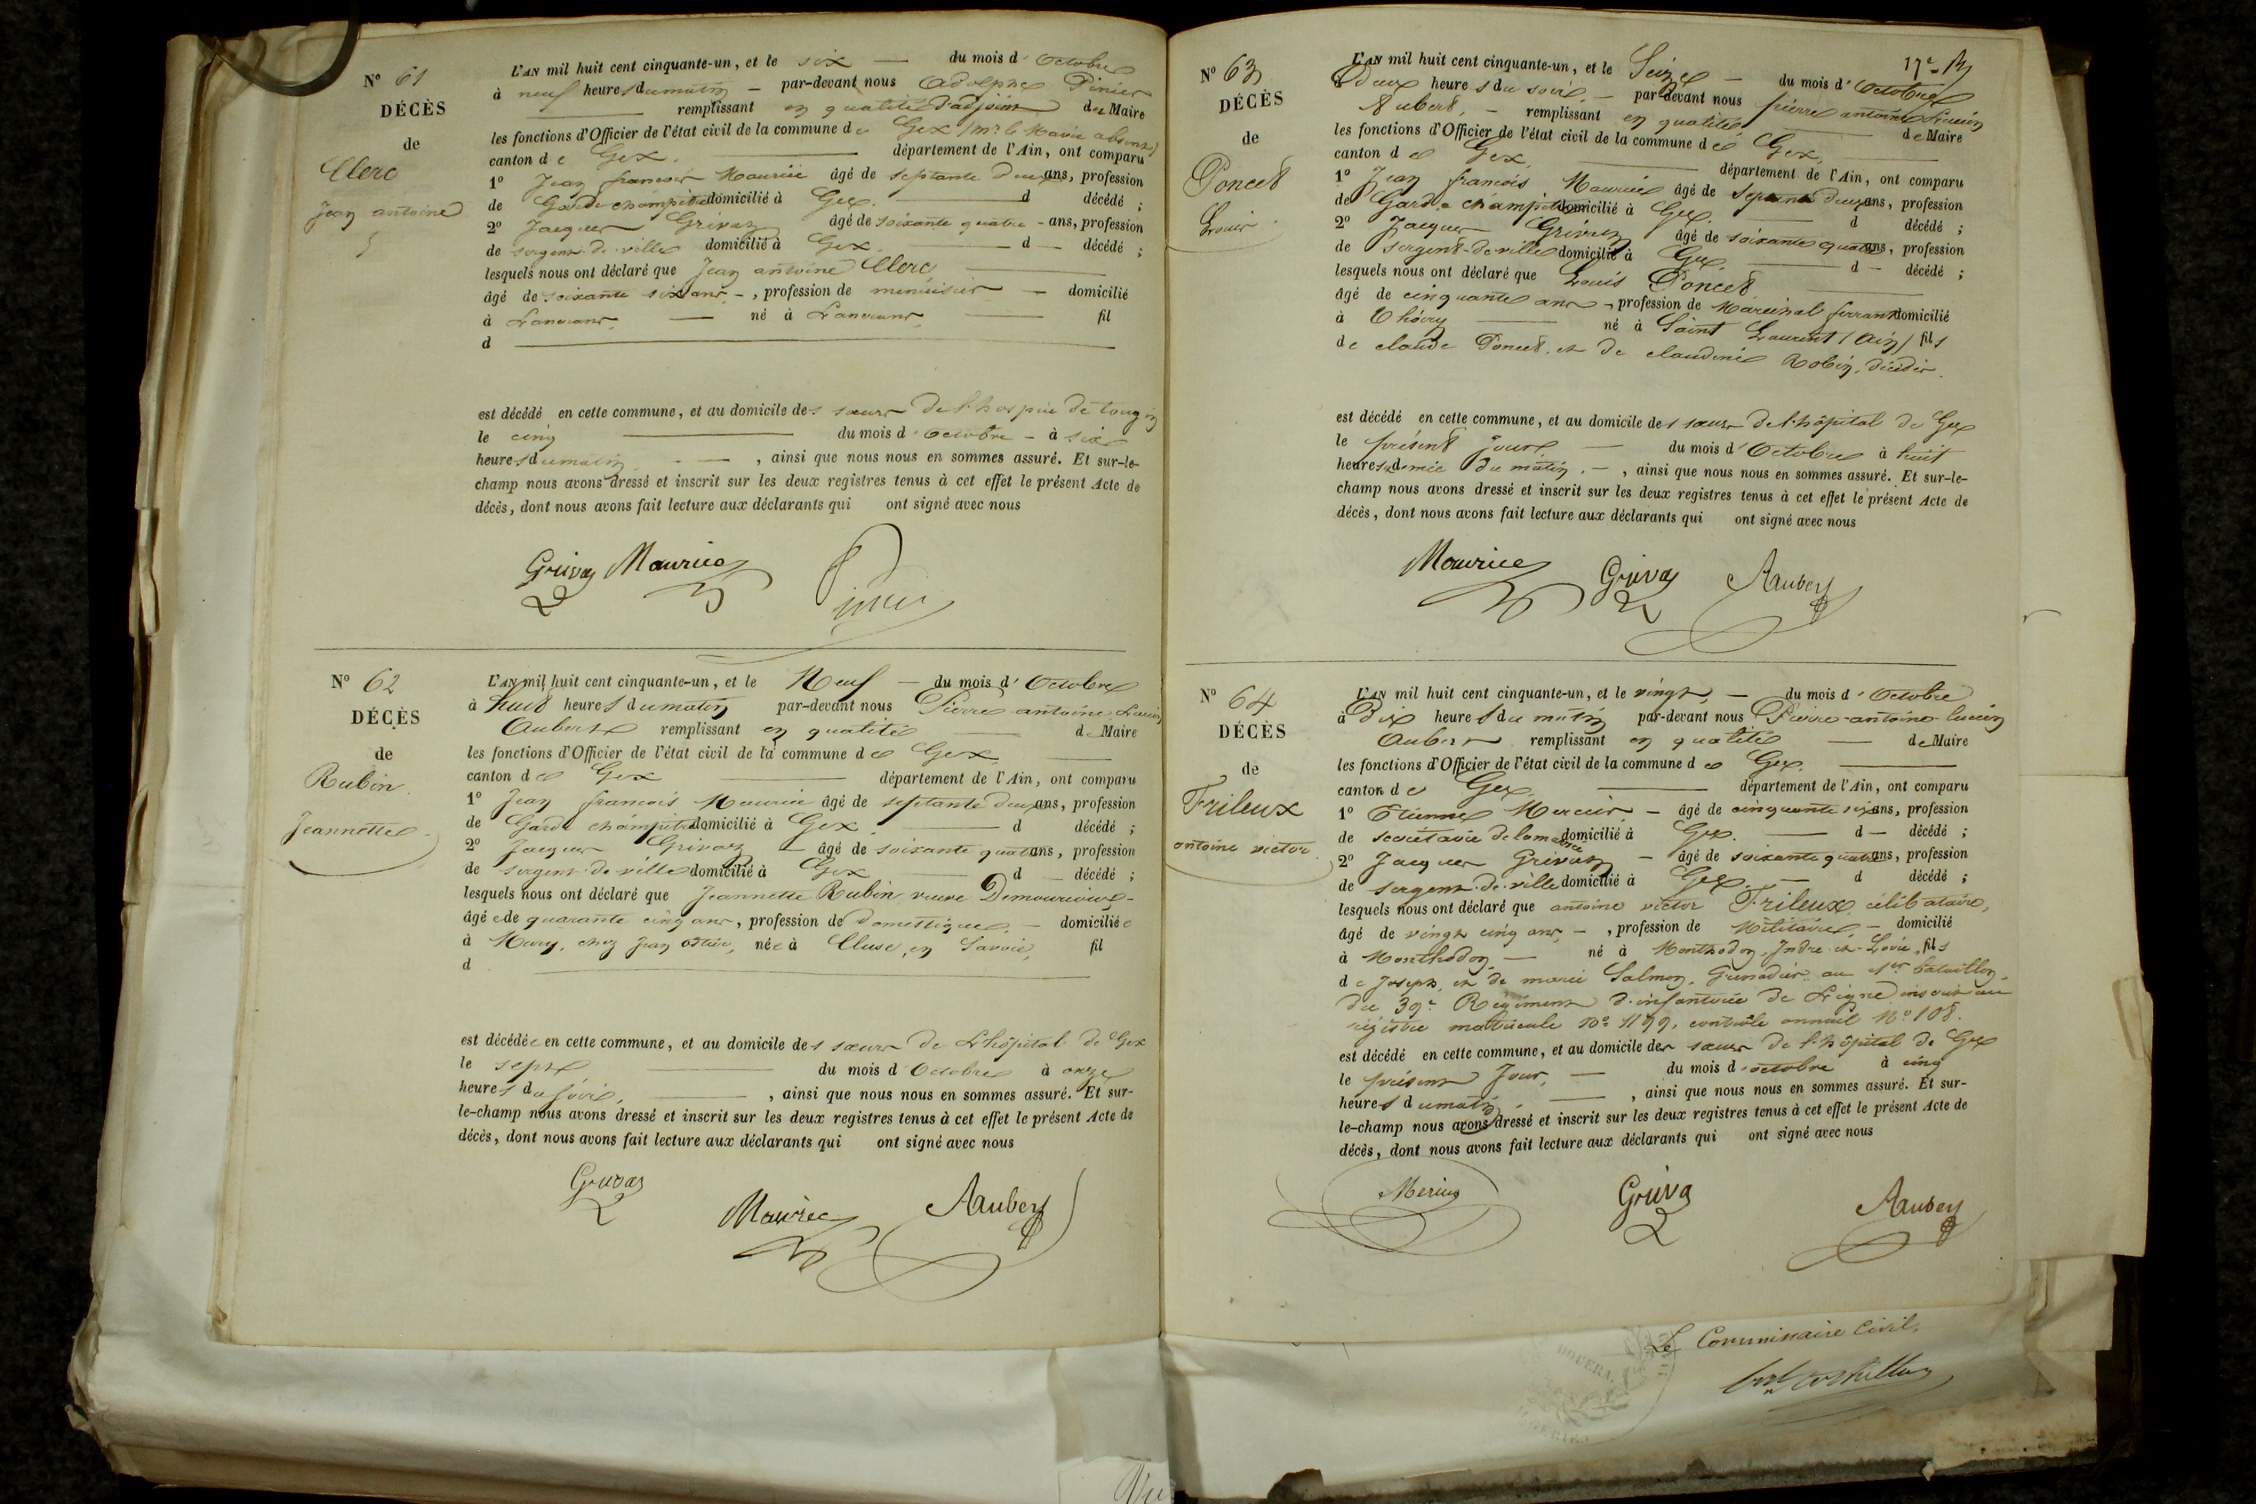 N° 61
DÉCÈS
de
Clerc
Jean antoine
L'AN mil huit cent cinquante-un, et le six — du mois d'Octobre
à neuf heures du matin — par-devant nous Adolphe Pinier
remplissant en qualité d'adjoint de Maire
les fonctions d'Officier de l'état civil de la commune de Gex (Mr le Maire absent)
canton de Gex. — département de l'Ain, ont comparu
1° Jean francois Maurice âgé de septante deux ans, profession
de Garde champêtre domicilié à Gex. — d décédé ;
2° Jacques Grivaz âgé de soixante quatre - ans, profession
de sergent de ville domicilié à Gex. — d — décédé ;
lesquels nous ont déclaré que Jean antoine Clerc
âgé de soixante six ans —, profession de menuisier — domicilié
à — né à — fil
d —
est décédé en cette commune, et au domicile des sœurs de l'hospice de tougin
le cinq — du mois d'octobre - à six
heures du matin — , ainsi que nous nous en sommes assuré. Et sur-le-
champ nous avons dressé et inscrit sur les deux registres tenus à cet effet le présent Acte de
décès, dont nous avons fait lecture aux déclarants qui ont signé avec nous
Grivaz Maurice Pinier
N° 62
DÉCÈS
de
Rubin
Jeannette
L'AN mil huit cent cinquante-un, et le Neuf — du mois d'Octobre
à huit heures du matin par-devant nous Pierre antoine Lucien
Aubert remplissant en qualité — de Maire
les fonctions d'Officier de l'état civil de la commune de Gex —
canton de Gex — département de l'Ain, ont comparu
1° Jean francois Maurice âgé de septante deux ans, profession
de Garde champêtre domicilié à Gex — d décédé ;
2° Jacques Grivaz — âgé de soixante quatre ans, profession
de sergent de ville domicilié à Gex — d — décédé ;
lesquels nous ont déclaré que Jeannette Rubin veuve
âgée de quarante cinq ans, profession de domestique — domiciliée
à chez Jean née à Cluse, en Savoie, fil
d —
est décédée en cette commune, et au domicile des sœurs de L'hôpital de Gex
le sept — du mois d'Octobre à onze
heures du soir, — , ainsi que nous nous en sommes assuré. Et sur-
le-champ nous avons dressé et inscrit sur les deux registres tenus à cet effet le présent Acte de
décès, dont nous avons fait lecture aux déclarants qui ont signé avec nous
Grivaz Maurice Aubert
N° 63
DÉCÈS
de
Poncet
Louis
L'AN mil huit cent cinquante-un, et le Seize — du mois d'Octobre
à Deux heures du soir — par-devant nous pierre antoine Lucien
Aubert, — remplissant en qualité — de Maire
les fonctions d'Officier de l'état civil de la commune de Gex, —
canton de Gex — département de l'Ain, ont comparu
1° Jean francois Maurice âgé de septante deux ans, profession
de Garde champêtre domicilié à Gex. — d décédé ;
2° Jacques Grivaz âgé de soixante quatre ans, profession
de sergent de ville domicilié à Gex. — d — décédé ;
lesquels nous ont déclaré que Louis Poncet —
âgé de cinquante ans —, profession de Maréchal ferrant domicilié
à Thoiry — né à Saint Laurent (Ain) fils
de claude Poncet et de claudine Robin, décédés.
est décédé en cette commune, et au domicile des sœurs de l'hôpital de Gex
le présent Jour — du mois d'Octobre à huit
heures demie du matin. — , ainsi que nous nous en sommes assuré. Et sur-le-
champ nous avons dressé et inscrit sur les deux registres tenus à cet effet le présent Acte de
décès, dont nous avons fait lecture aux déclarants qui ont signé avec nous
Maurice Grivaz Aubert
N° 64
DÉCÈS
de
Frileux
antoine victor
L'AN mil huit cent cinquante-un, et le vingt — du mois d'Octobre
à Dix heures du matin par-devant nous Pierre-antoine-lucien
Aubert remplissant en qualité — de Maire
les fonctions d'Officier de l'état civil de la commune de Gex. —
canton de Gex. — département de l'Ain, ont comparu
1° Etienne Mercier — âgé de cinquante six ans, profession
de secrétaire de la mairie domicilié à Gex. — d — décédé ;
2° Jacques Grivaz — âgé de soixante quatre ans, profession
de sergent de ville domicilié à Gex. — d décédé ;
lesquels nous ont déclaré que antoine victor Frileux célibataire,
âgé de vingt cinq ans —, profession de Militaire — domicilié
à Monthodon, — né à Monthodon, Indre et Loire, fils
de Joseph, et de marie Salmon, Grenadier au 1er bataillon
du 39e Régiment d'infanterie de Ligne inscrit au
registre matricule No 1199, contrôle annuel No 108.
est décédé en cette commune, et au domicile des sœurs de l'hôpital de Gex
le présent Jour, — du mois d'octobre à cinq
heures du matin, — , ainsi que nous nous en sommes assuré. Et sur-
le-champ nous avons dressé et inscrit sur les deux registres tenus à cet effet le présent Acte de
décès, dont nous avons fait lecture aux déclarants qui ont signé avec nous
Grivaz Aubert
Le Commissaire Civil,